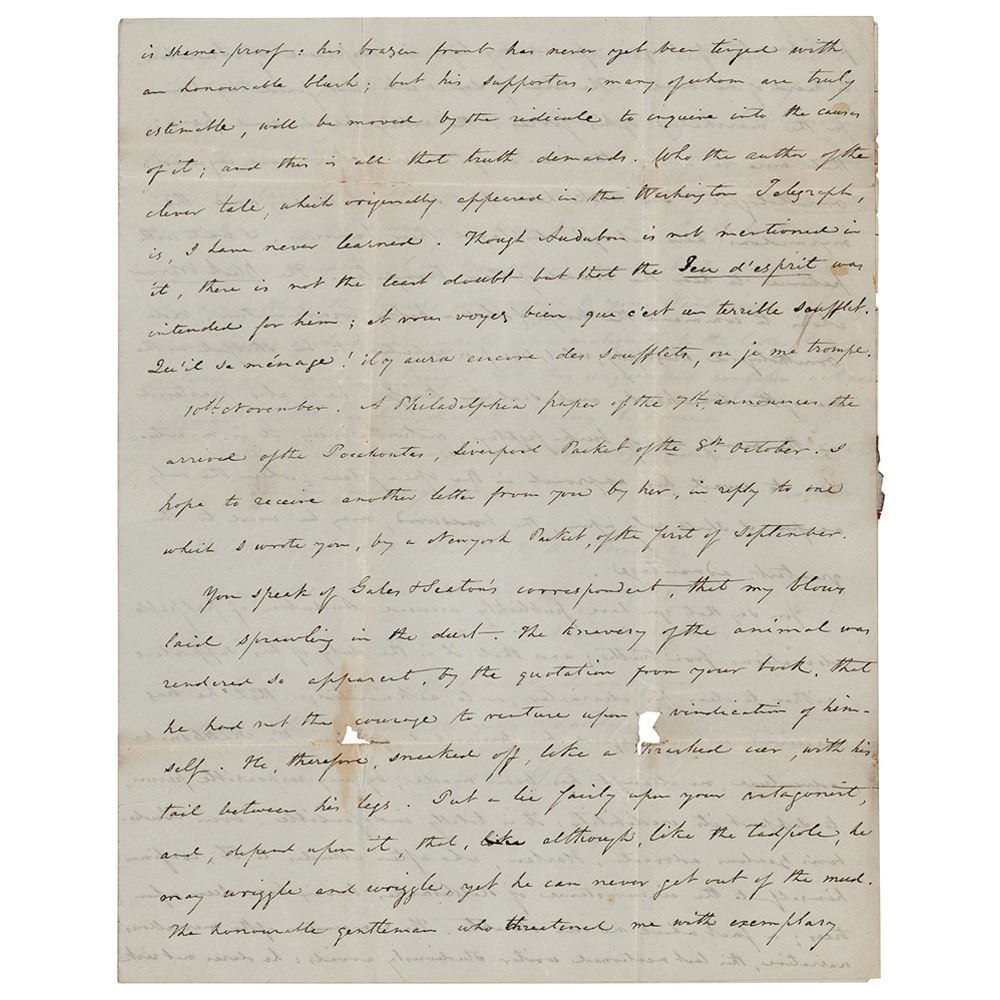 is shame-proof: his brazen front has never yet been tinged with
an honourable blush; but his supporters, many of whom are truly
estimable, will be moved by the ridicule to enquire into the causes
of it; and this is all that truth demands. Who the author of the
clever tale, which originally appeared in the Washington Telegraph,
is, I have never learned. Though Audubon is not mentioned in
it, there is not the least doubt but that the Jeu d'esprit was
intended for him; et vous voyez bien que c'est un terrible soufflet.
Qu'il se ménage! il y aura encore des soufflets, ou je me trompe.
10th November. A Philadelphia paper of the 7th, announces the
arrival of the Pocahontas, Liverpool Packet of the 8th October. I
hope to receive another letter from you by her, in reply to one
which I wrote you, by a Newyork Packet, of the first of September.
You speak of Gales & Seaton's correspondent, that my blows
laid sprawling in the dust. The knavery of the animal was
rendered so apparent, by the quotation from your book, that
he had not the courage to venture upon vindication of him-
self. He, therefore, sneaked off, like a thrashed cur, with his
tail between his legs. Put a lie fairly upon your antagonist,
and, depend upon it, that, although, like the tadpole, he
may wriggle and wriggle, yet he can never get out of the mud.
The honourable gentleman who threatened me with exemplary